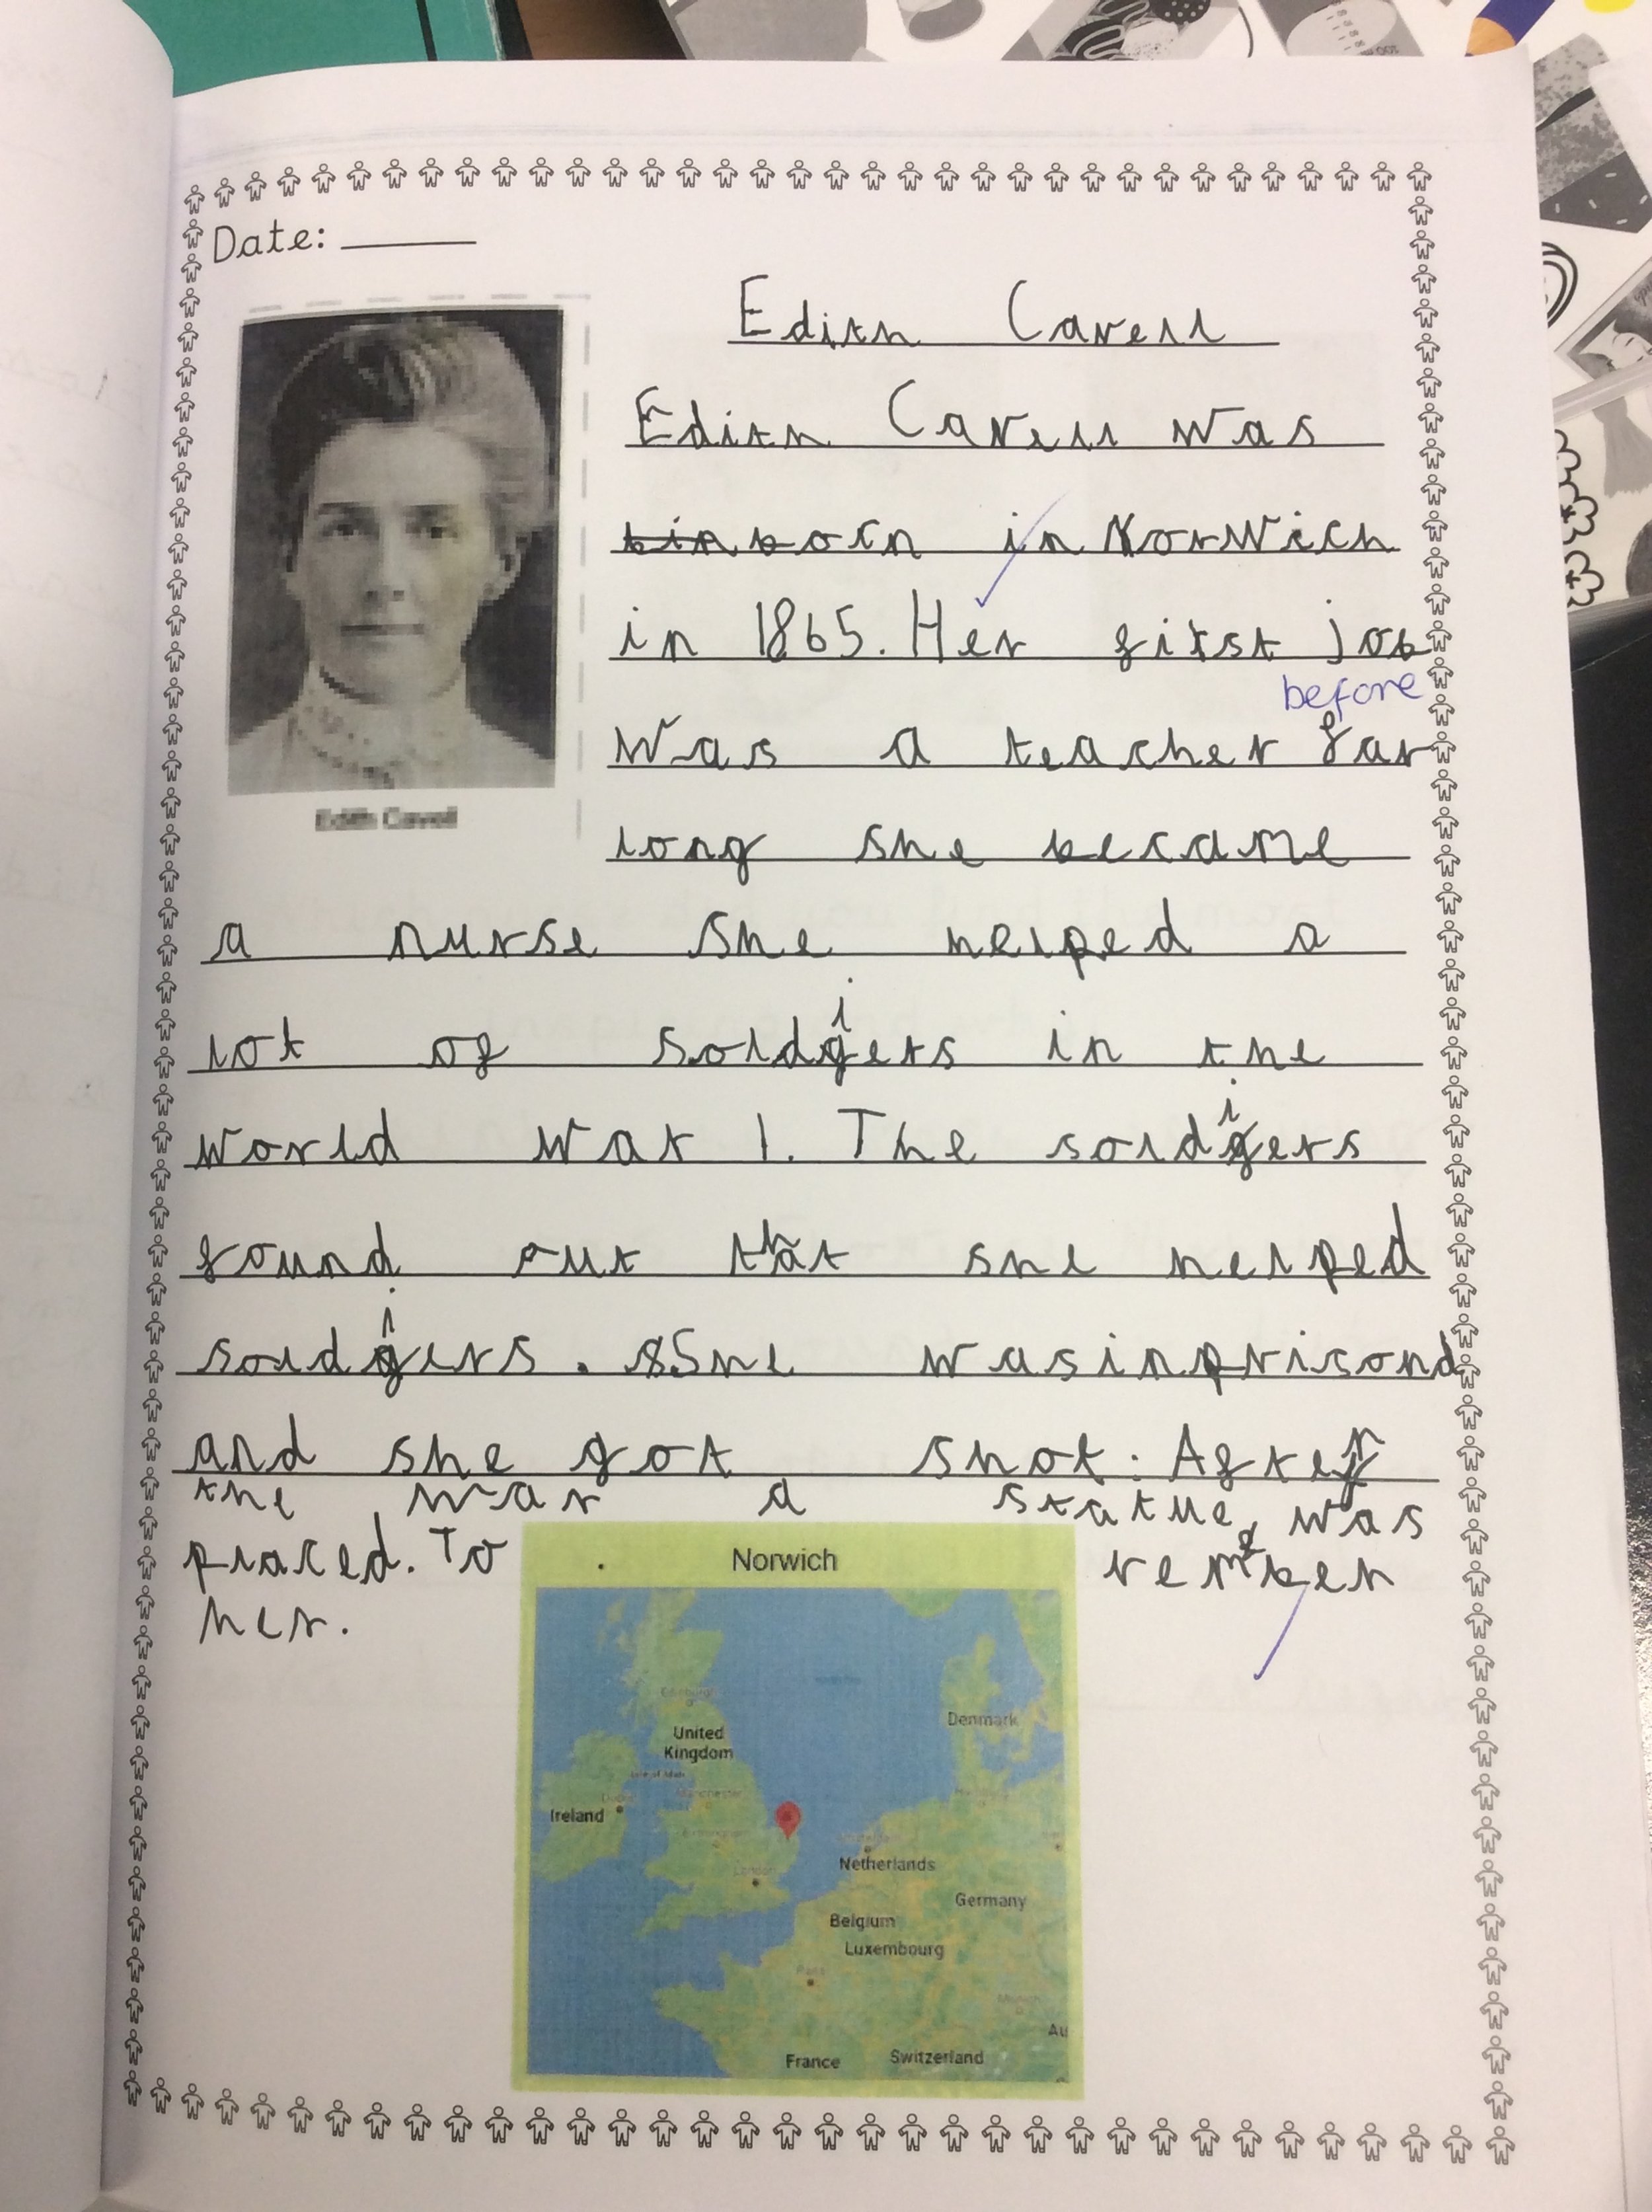 Date:
Edith Cavell
Edith Cavell
Edith Cavell was
born in Norwich
in 1865. Her first job
before
was a teacher far
long she became
a nurse She helped a
lot of soldiers in the
world war 1. The soldiers
found out that she helped
soldiers. She was inprisond
and she got shot. After
the war a statue was
placed. To remeber
her.
Norwich
Edinburgh
United
Kingdom
Isle of Man
Denmark
Dublin
Manchester
Ireland
Hamburg
Birmingham
London
Netherlands
Germany
Belgium
Luxembourg
Paris
Munich
Au
France
Switzerland